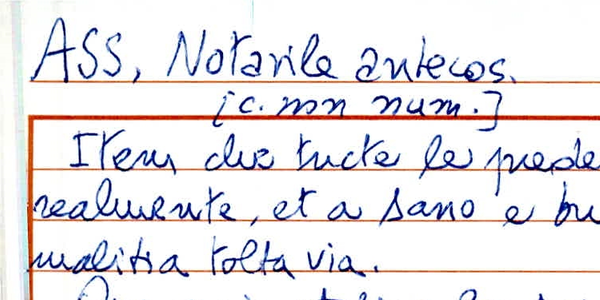 ASS, Notarile antecos.
[c. non num.]
Item che tucte le prede
realmente, et a sano e bu
malitia tolta via.